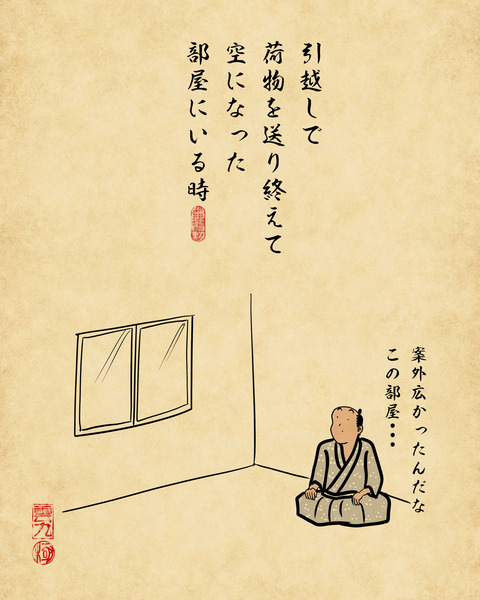 引越しで
荷物を送り終えて
空になった
部屋にいる時
案外広かったんだな
この部屋・・・